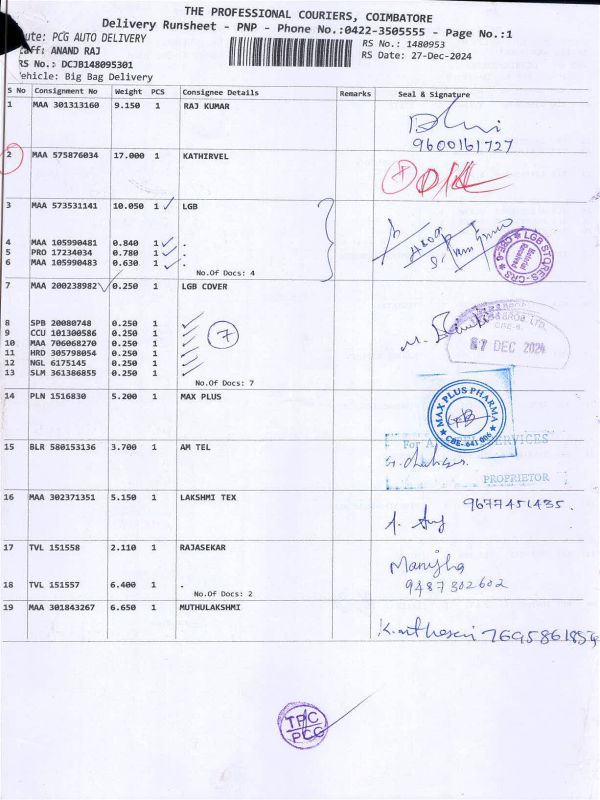 THE PROFESSIONAL COURIERS, COIMBATORE
Delivery Runsheet - PNP - Phone No.:0422-3505555 - Page No.:1
ute: PCG AUTO DELIVERY
RS No.: 1480953
taff: ANAND RAJ
RS Date: 27-Dec-2024
RS No.: DCJB148095301
ehicle: Big Bag Delivery
S No Consignment No Weight PCS Consignee Details Remarks Seal & Signature
1 MAA 301313160 9.150 1 RAJ KUMAR
9600161727
2 MAA 575876034 17.000 1 KATHIRVEL
3 MAA 573531141 10.050 1 LGB
4 MAA 105990481 0.840 1 .
5 PRO 17234034 0.780 1 .
6 MAA 105990483 0.630 1 .
No.Of Docs: 4
LGB STORES-GRS CBE-6
Material Received
7 MAA 200238982 0.250 1 LGB COVER
8 SPB 20080748 0.250 1 .
9 CCU 101300586 0.250 1 .
10 MAA 706068270 0.250 1 .
11 HRD 305798054 0.250 1 .
12 NGL 6175145 0.250 1 .
13 SLM 361386855 0.250 1 .
7
No.Of Docs: 7
& BROS LTD.
CBE-6.
27 DEC 2024
14 PLN 1516830 5.200 1 MAX PLUS
MAX PLUS PHARMA
CBE-641 006
15 BLR 580153136 3.700 1 AM TEL
For A SERVICES
PROPRIETOR
16 MAA 302371351 5.150 1 LAKSHMI TEX
9677451435.
17 TVL 151558 2.110 1 RAJASEKAR
Manjha
18 TVL 151557 6.400 1 .
9487302602
No.Of Docs: 2
19 MAA 301843267 6.650 1 MUTHULAKSHMI
TPC
PCG